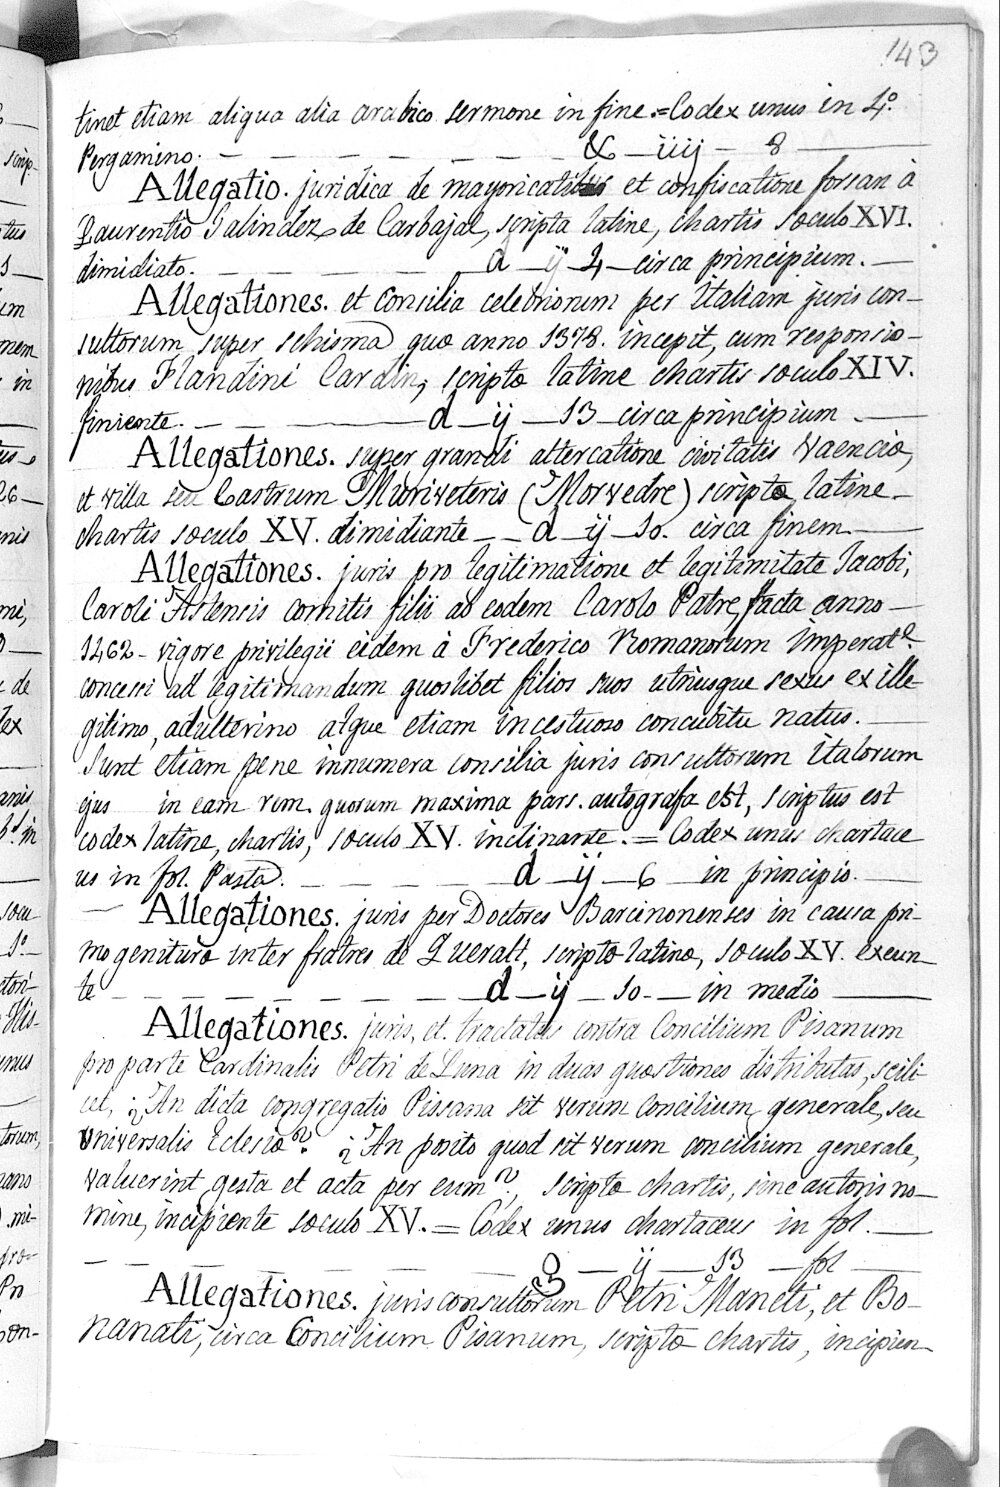 143
tinet etiam aliqua alia arabico sermone in fine.=Codex unus in 4º
Pergamino. — — — — — — — — & — iiij — 8 —
Allegatio. juridica de mayoricatibus et confiscatione forsan à
Laurentio Galindez de Carbajal, scripta latine, chartis sœculo XVI.
dimidiato. — — — — — — d — ij — 4 — circa principium. —
Allegationes. et consilia celebriorum per Italiam juris con-
sultorum super schisma quœ anno 1378. incepit, cum responsio-
nibus Flandini Cardin, scriptœ latine chartis sœculo XIV.
finiente. — — — d — ij — 13 — circa principium —
Allegationes. super grandi altercatione civitatis Vaenciœ,
et villœ seu Castrum Muriveteris (Morvedre) scriptœ latine
chartis sœculo XV. dimidiante — — d — ij — 10. circa finem —
Allegationes. juris pro legitimatione et legitimitate Jacobi,
Caroli Astensis comitis filii ab eodem Carolo Patre, facta anno
1462 - vigore privilegii eidem à Frederico Romanorum Imperatº
concessi ad legitimandum quoslibet filios suos utriusque sexus ex ille-
gitimo, adulterino atque etiam incestuoso concubitu natus. —
Sunt etiam pene innumera consilia juris consultorum Italorum
ejus in eam rem. quorum maxima pars. autografa est, scriptus est
codex latine, chartis, sœculo XV. inclinante. = Codex unus chartace
us in fol. Pasta. — — — — — d — ij — 6 — in principio. —
— Allegationes. juris per Doctores Barcinonenses in causa pri-
mogeniturœ inter fratres de Queralt, scriptœ latine, sœculo XV. exeun-
te — — — — — — — — d — ij — 10. — in medio —
Allegationes. juris, et tractatus contra Concilium Pisanum
pro parte Cardinalis Petri de Luna in duas quœstiones distributas, scili
cet, ¿An dicta congregatio Pissana sit verum concilium generale, seu
universalis Eclesiœ? ¿An posito quod sit verum concilium generale,
valuerint gesta et acta per eum?, scriptœ chartis, sine autoris no-
mine, incipiente sœculo XV. = Codex unus chartaceus in fol. —
— — — — — — — — — g — ij — 13 — fol —
Allegationes. juris consultorum Petri Maneti, et Bo-
nanati, circa Concilium Pisanum, scriptœ chartis, incipien-